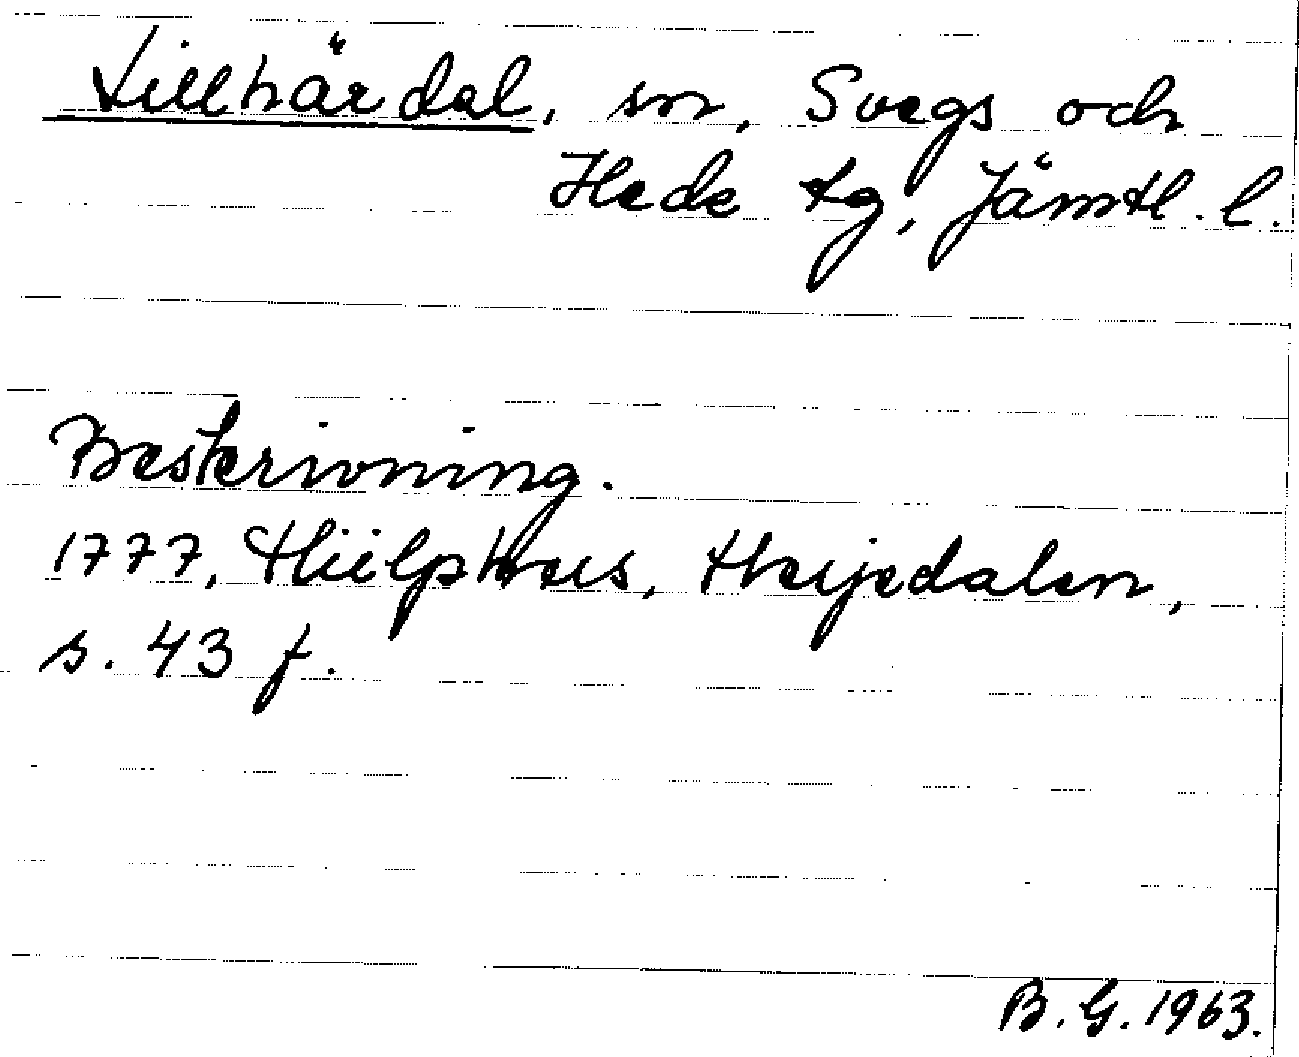 Lillhärdal, sn, Svegs och
Hede tg, Jämtl. l.
Beskrivning.
1777, Hülphers, Herjedalen,
s. 43 f.
B. G. 1963.